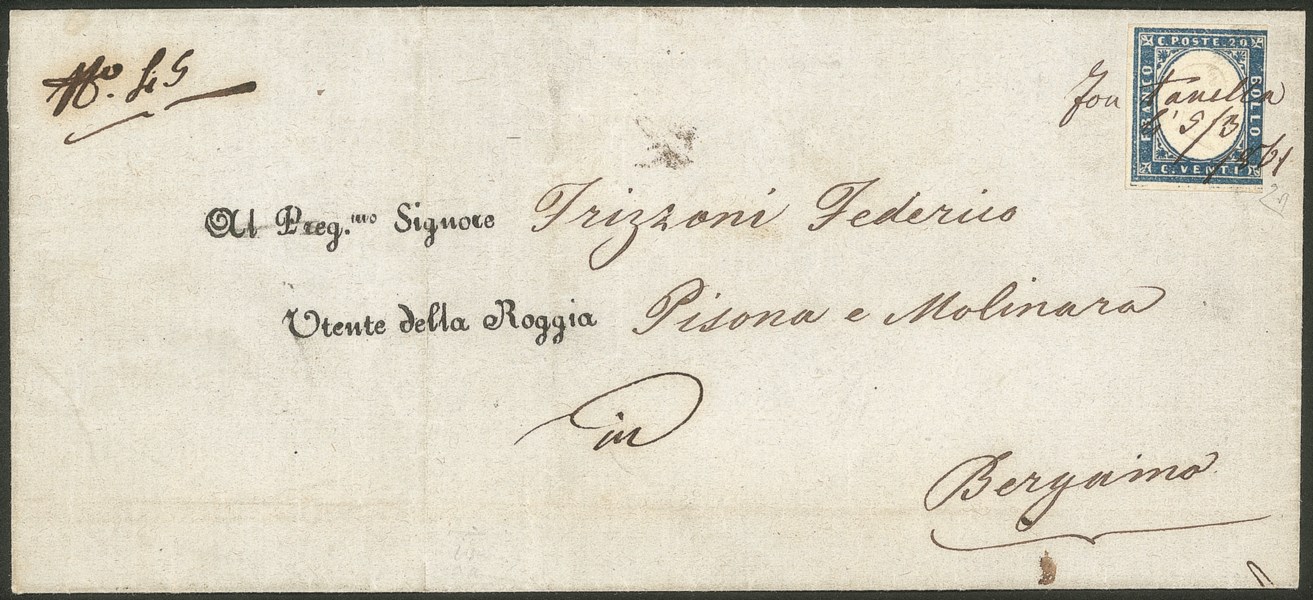 C. POSTE. 20
FRANCO
BOLLO
C. VENTI
Fontanella
5/3
1861
Al Preg.mo Signore Frizzoni Federico
Utente della Roggia Pisona e Molinara
in
Bergamo